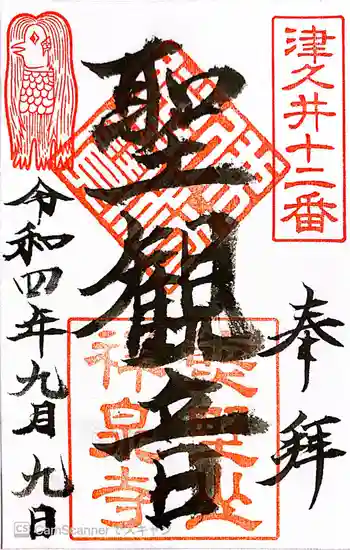 津久井十二番
奉拝
聖観音
神泉寺
令和四年九月九日
CS CamScannerでスキャン